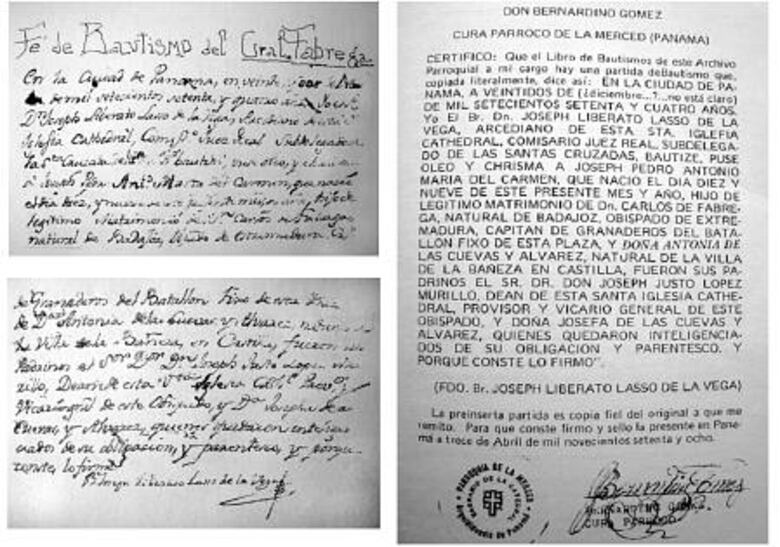 Fé de Bautismo del Gral. Fabrega
En la Ciudad de Panama, en veinte, y dos de
de mil setecientos setenta, y quatro
Dn. Joseph Liberato Lasso de la Vega, Arcediano de esta
Iglesia Cathedral, Juez Real Subdelegado
y
Joseph Maria del Carmen, que nació
el dia diez, y nueve de este mes hijo de
legitimo Matrimonio de Dn. Carlos de Fabrega
natural de Badajoz, Obispado de Estremadura, Capn.
de Granaderos del Batallon Fixo de esta Plaza
de Da. Antonia de las Cuevas, y Alvarez, natural de
la Villa de la Bañesa, en Castilla, fueron sus
Padrinos el Sor. Dor. Dn. Joseph Justo Lopez Mu-
rillo, Dean de esta Iglesia Cathl.
Vicario Gral. de este Obispado, y Da. Josepha de las
Cuevas, y Alvarez, quienes quedaron inteligen-
ciados de su obligacion, y parentesco, y porque
conste, lo firmé
Br. Joseph Liberato Lasso de la Vega
DON BERNARDINO GOMEZ
CURA PARROCO DE LA MERCED (PANAMA)
CERTIFICO: Que el Libro de Bautismos de este Archivo
Parroquial a mi cargo hay una partida deBautismo que,
copiada literalmente, dice así: EN LA CIUDAD DE PA-
NAMA, A VEINTIDOS DE (¿diciembre...?...no está claro)
DE MIL SETECIENTOS SETENTA Y CUATRO AÑOS.
Yo El Br. Dn. JOSEPH LIBERATO LASSO DE LA
VEGA, ARCEDIANO DE ESTA STA. IGLEFIA
CATHEDRAL, COMISARIO JUEZ REAL, SUBDELEGA-
DO DE LAS SANTAS CRUZADAS, BAUTIZE, PUSE
OLEO Y CHRISMA A JOSEPH PEDRO ANTONIO
MARIA DEL CARMEN, QUE NACIO EL DIA DIEZ Y
NUEVE DE ESTE PRESENTE MES Y AÑO, HIJO DE
LEGITIMO MATRIMONIO DE Dn. CARLOS DE FABRE-
GA, NATURAL DE BADAJOZ, OBISPADO DE EXTRE-
MADURA, CAPITAN DE GRANADEROS DEL BATA-
LLON FIXO DE ESTA PLAZA, Y DOÑA ANTONIA DE
LAS CUEVAS Y ALVAREZ, NATURAL DE LA VILLA
DE LA BAÑEZA EN CASTILLA, FUERON SUS PA-
DRINOS EL SR. DR. DON JOSEPH JUSTO LOPEZ
MURILLO, DEAN DE ESTA SANTA IGLESIA CATHE-
DRAL, PROVISOR Y VICARIO GENERAL DE ESTE
OBISPADO, Y DOÑA JOSEFA DE LAS CUEVAS Y
ALVAREZ, QUIENES QUEDARON INTELIGENCIA-
DOS DE SU OBLIGACION Y PARENTESCO. Y
PORQUE CONSTE LO FIRMO".
(FDO. Br. JOSEPH LIBERATO LASSO DE LA VEGA)
La preinserta partida es copia fiel del original a que me
remito. Para que conste firmo y sello la presente en Pana-
má a trece de Abril de mil novecientos setenta y ocho.
PARROQUIA DE LA MERCED
Bernardino Gomez
BERNARDINO GOMEZ
CURA PARROCO